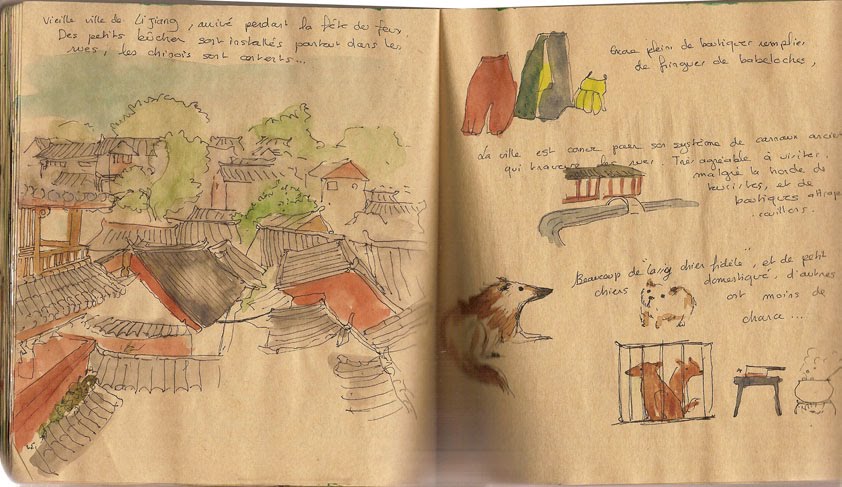 Vieille ville de Lijiang, arrivé pendant la fête du feu.
Des petits bûcher sont installés partout dans les
rues, les chinois sont contents...
plein de boutiques remplies
de fringues de babeloches,
La ville est connue pour son système de canaux ancien
qui traverse les rues. Très agréable à visiter,
malgré la horde de
touristes, et de
boutiques attrape
couillons.
Beaucoup de "Lassy chien fidèle", et de petit
chiens domestiqué, d'autres
ont moins de
chance...